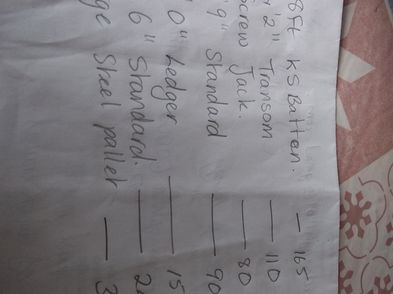 8ft KS Batten. — 165
2" Transom — 110
Screw Jack. — 80
9" Standard — 90
0" Ledger — 15
6" Standard. — 2
ge Steel pallet — 3